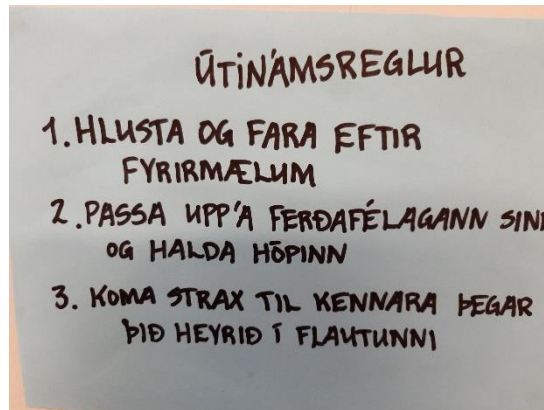 ÚTINÁMSREGLUR
1. HLUSTA OG FARA EFTIR
FYRIRMÆLUM
2. PASSA UPP'A FERÐAFÉLAGANN
OG HALDA HÓPINN
3. KOMA STRAX TIL KENNARA ÞEGAR
ÞIÐ HEYRIÐ Í FLAUTUNNI